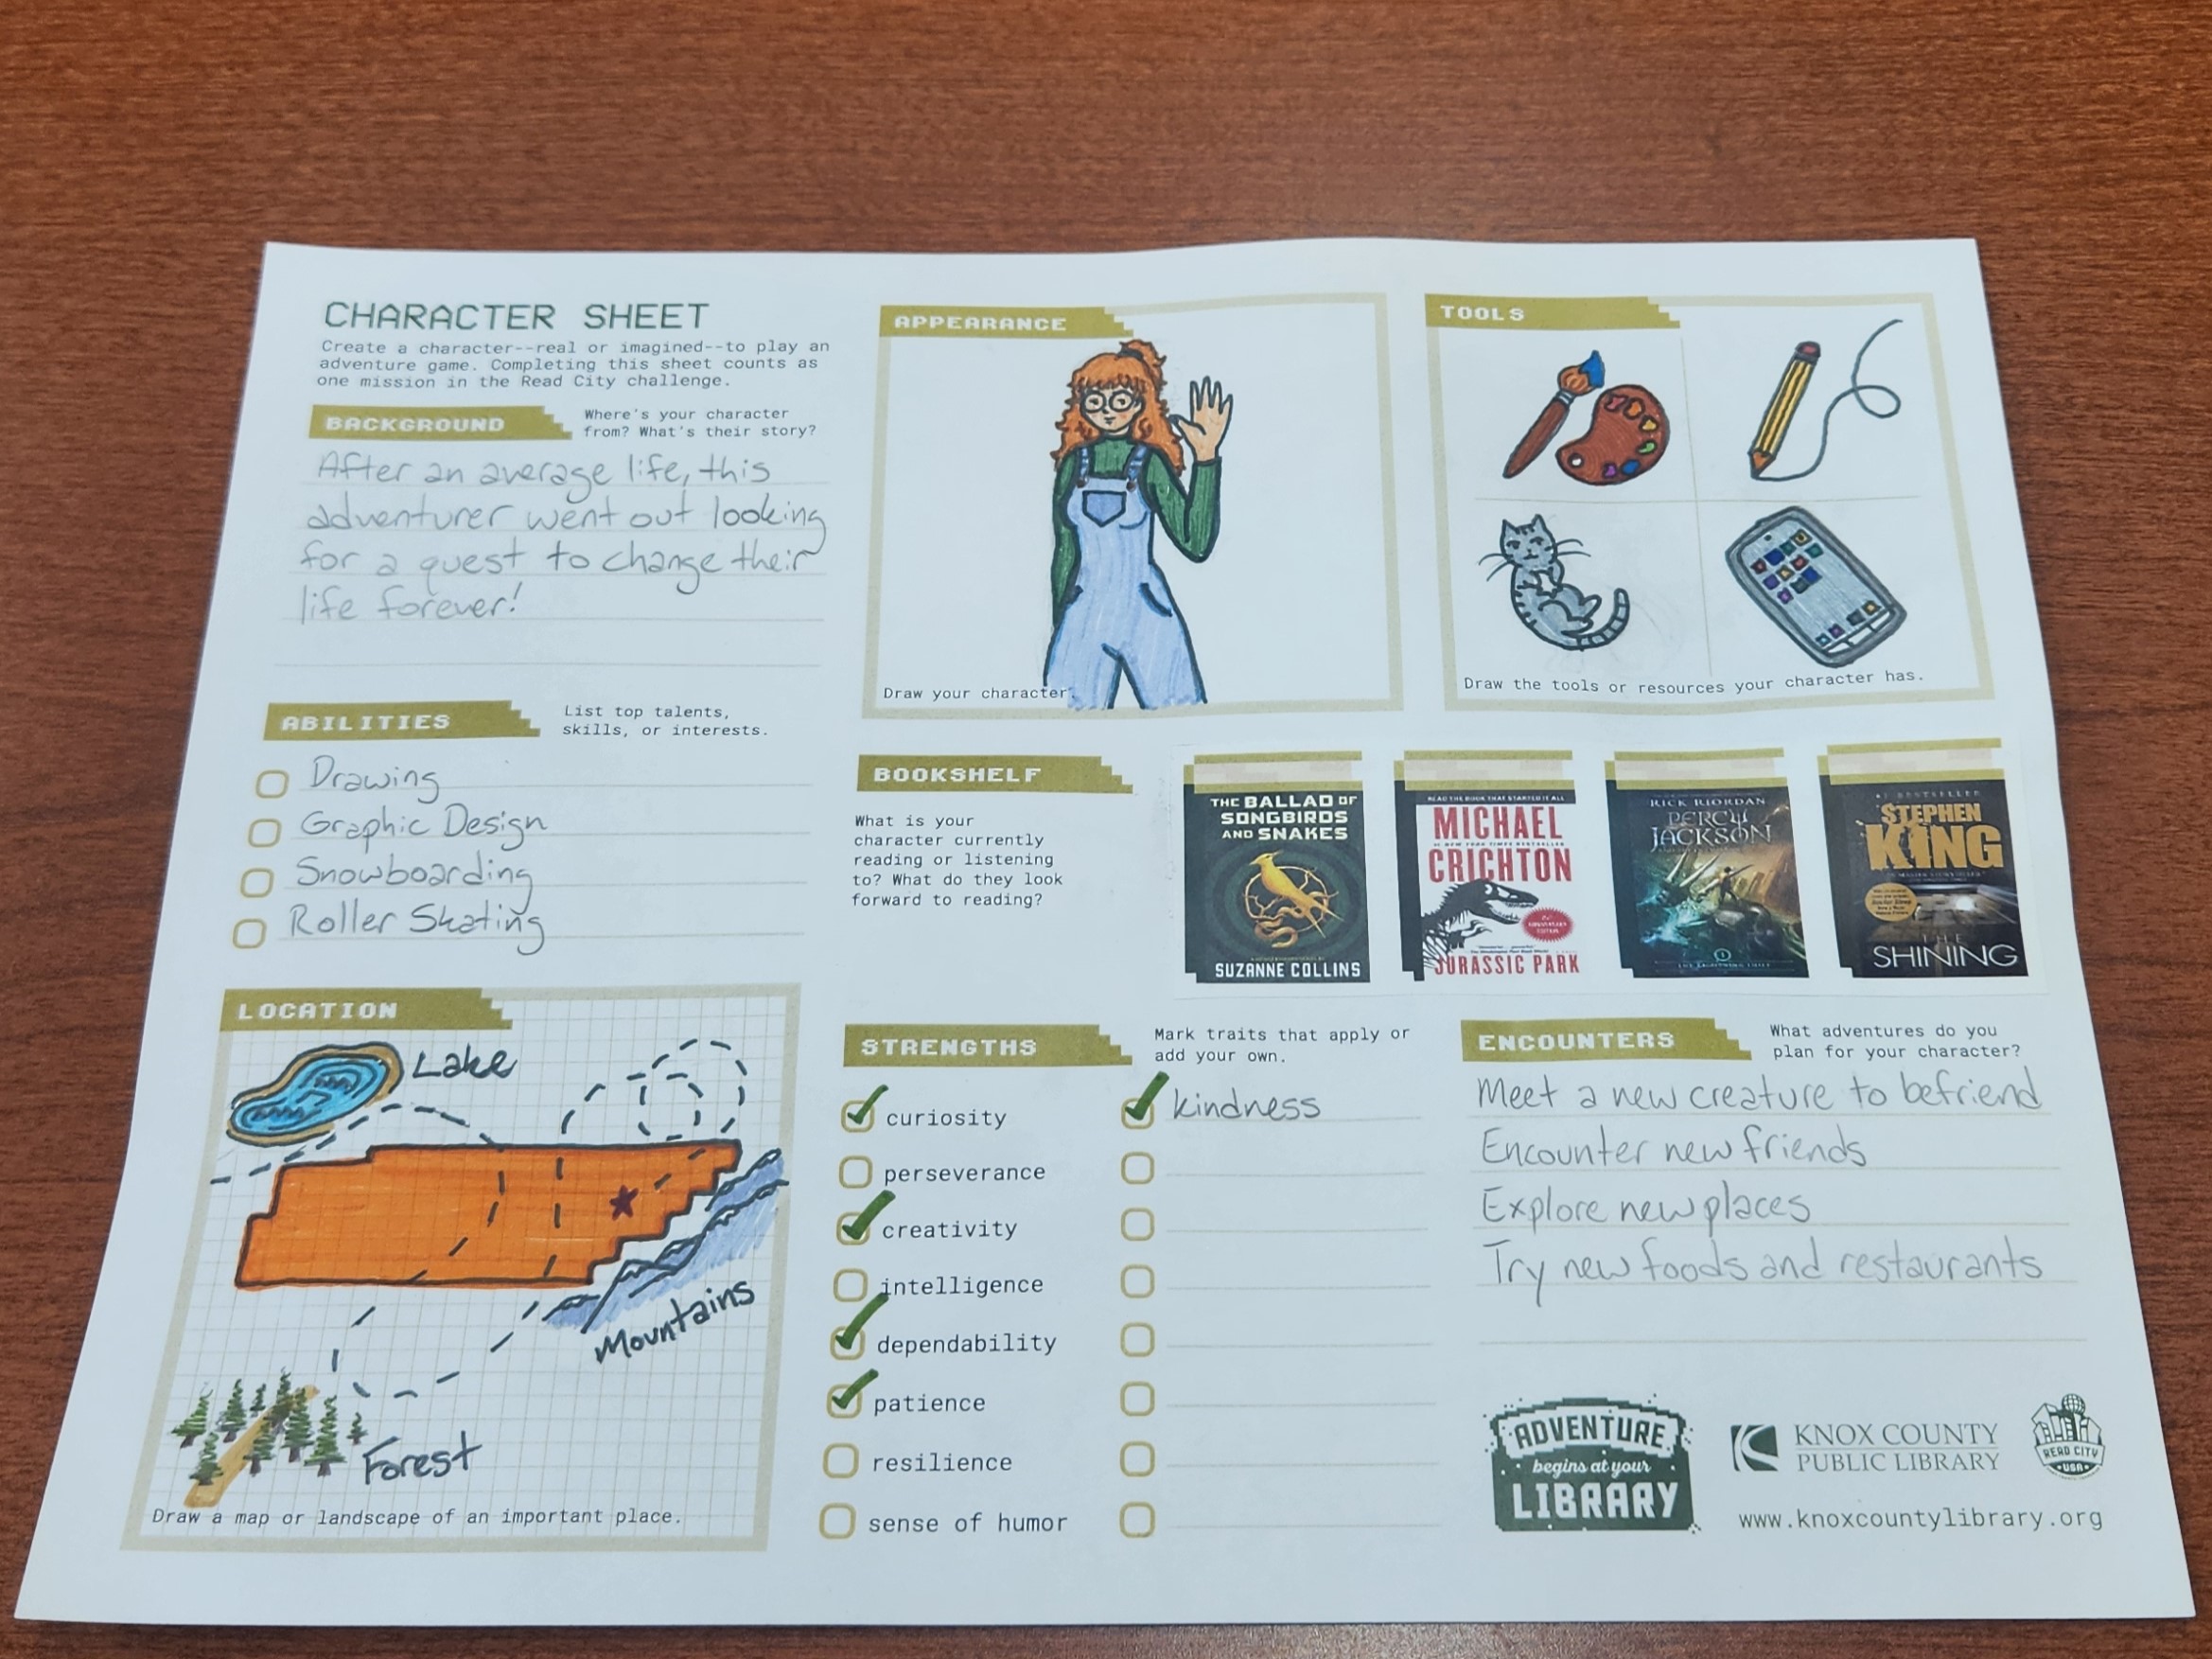 CHARACTER SHEET
Create a character--real or imagined--to play an
adventure game. Completing this sheet counts as
one mission in the Read City challenge.
BACKGROUND
Where's your character
from? What's their story?
After an average life, this
adventurer went out looking
for a quest to change their
life forever!
APPEARANCE
Draw your character.
TOOLS
Draw the tools or resources your character has.
ABILITIES
List top talents,
skills, or interests.
Drawing
Graphic Design
Snowboarding
Roller Skating
BOOKSHELF
What is your
character currently
reading or listening
to? What do they look
forward to reading?
THE BALLAD OF
SONGBIRDS
AND SNAKES
SUZANNE COLLINS
READ THE BOOK THAT STARTED IT ALL
MICHAEL
CRICHTON
JURASSIC PARK
RICK RIORDAN
PERCY
JACKSON
THE LIGHTNING THIEF
#1 BESTSELLER
STEPHEN
KING
THE
SHINING
LOCATION
Lake
Mountains
Forest
Draw a map or landscape of an important place.
STRENGTHS
Mark traits that apply or
add your own.
curiosity
perseverance
creativity
intelligence
dependability
patience
resilience
sense of humor
kindness
ENCOUNTERS
What adventures do you
plan for your character?
Meet a new creature to befriend
Encounter new friends
Explore new places
Try new foods and restaurants
ADVENTURE
begins at your
LIBRARY
KNOX COUNTY
PUBLIC LIBRARY
READ CITY
USA
www.knoxcountylibrary.org